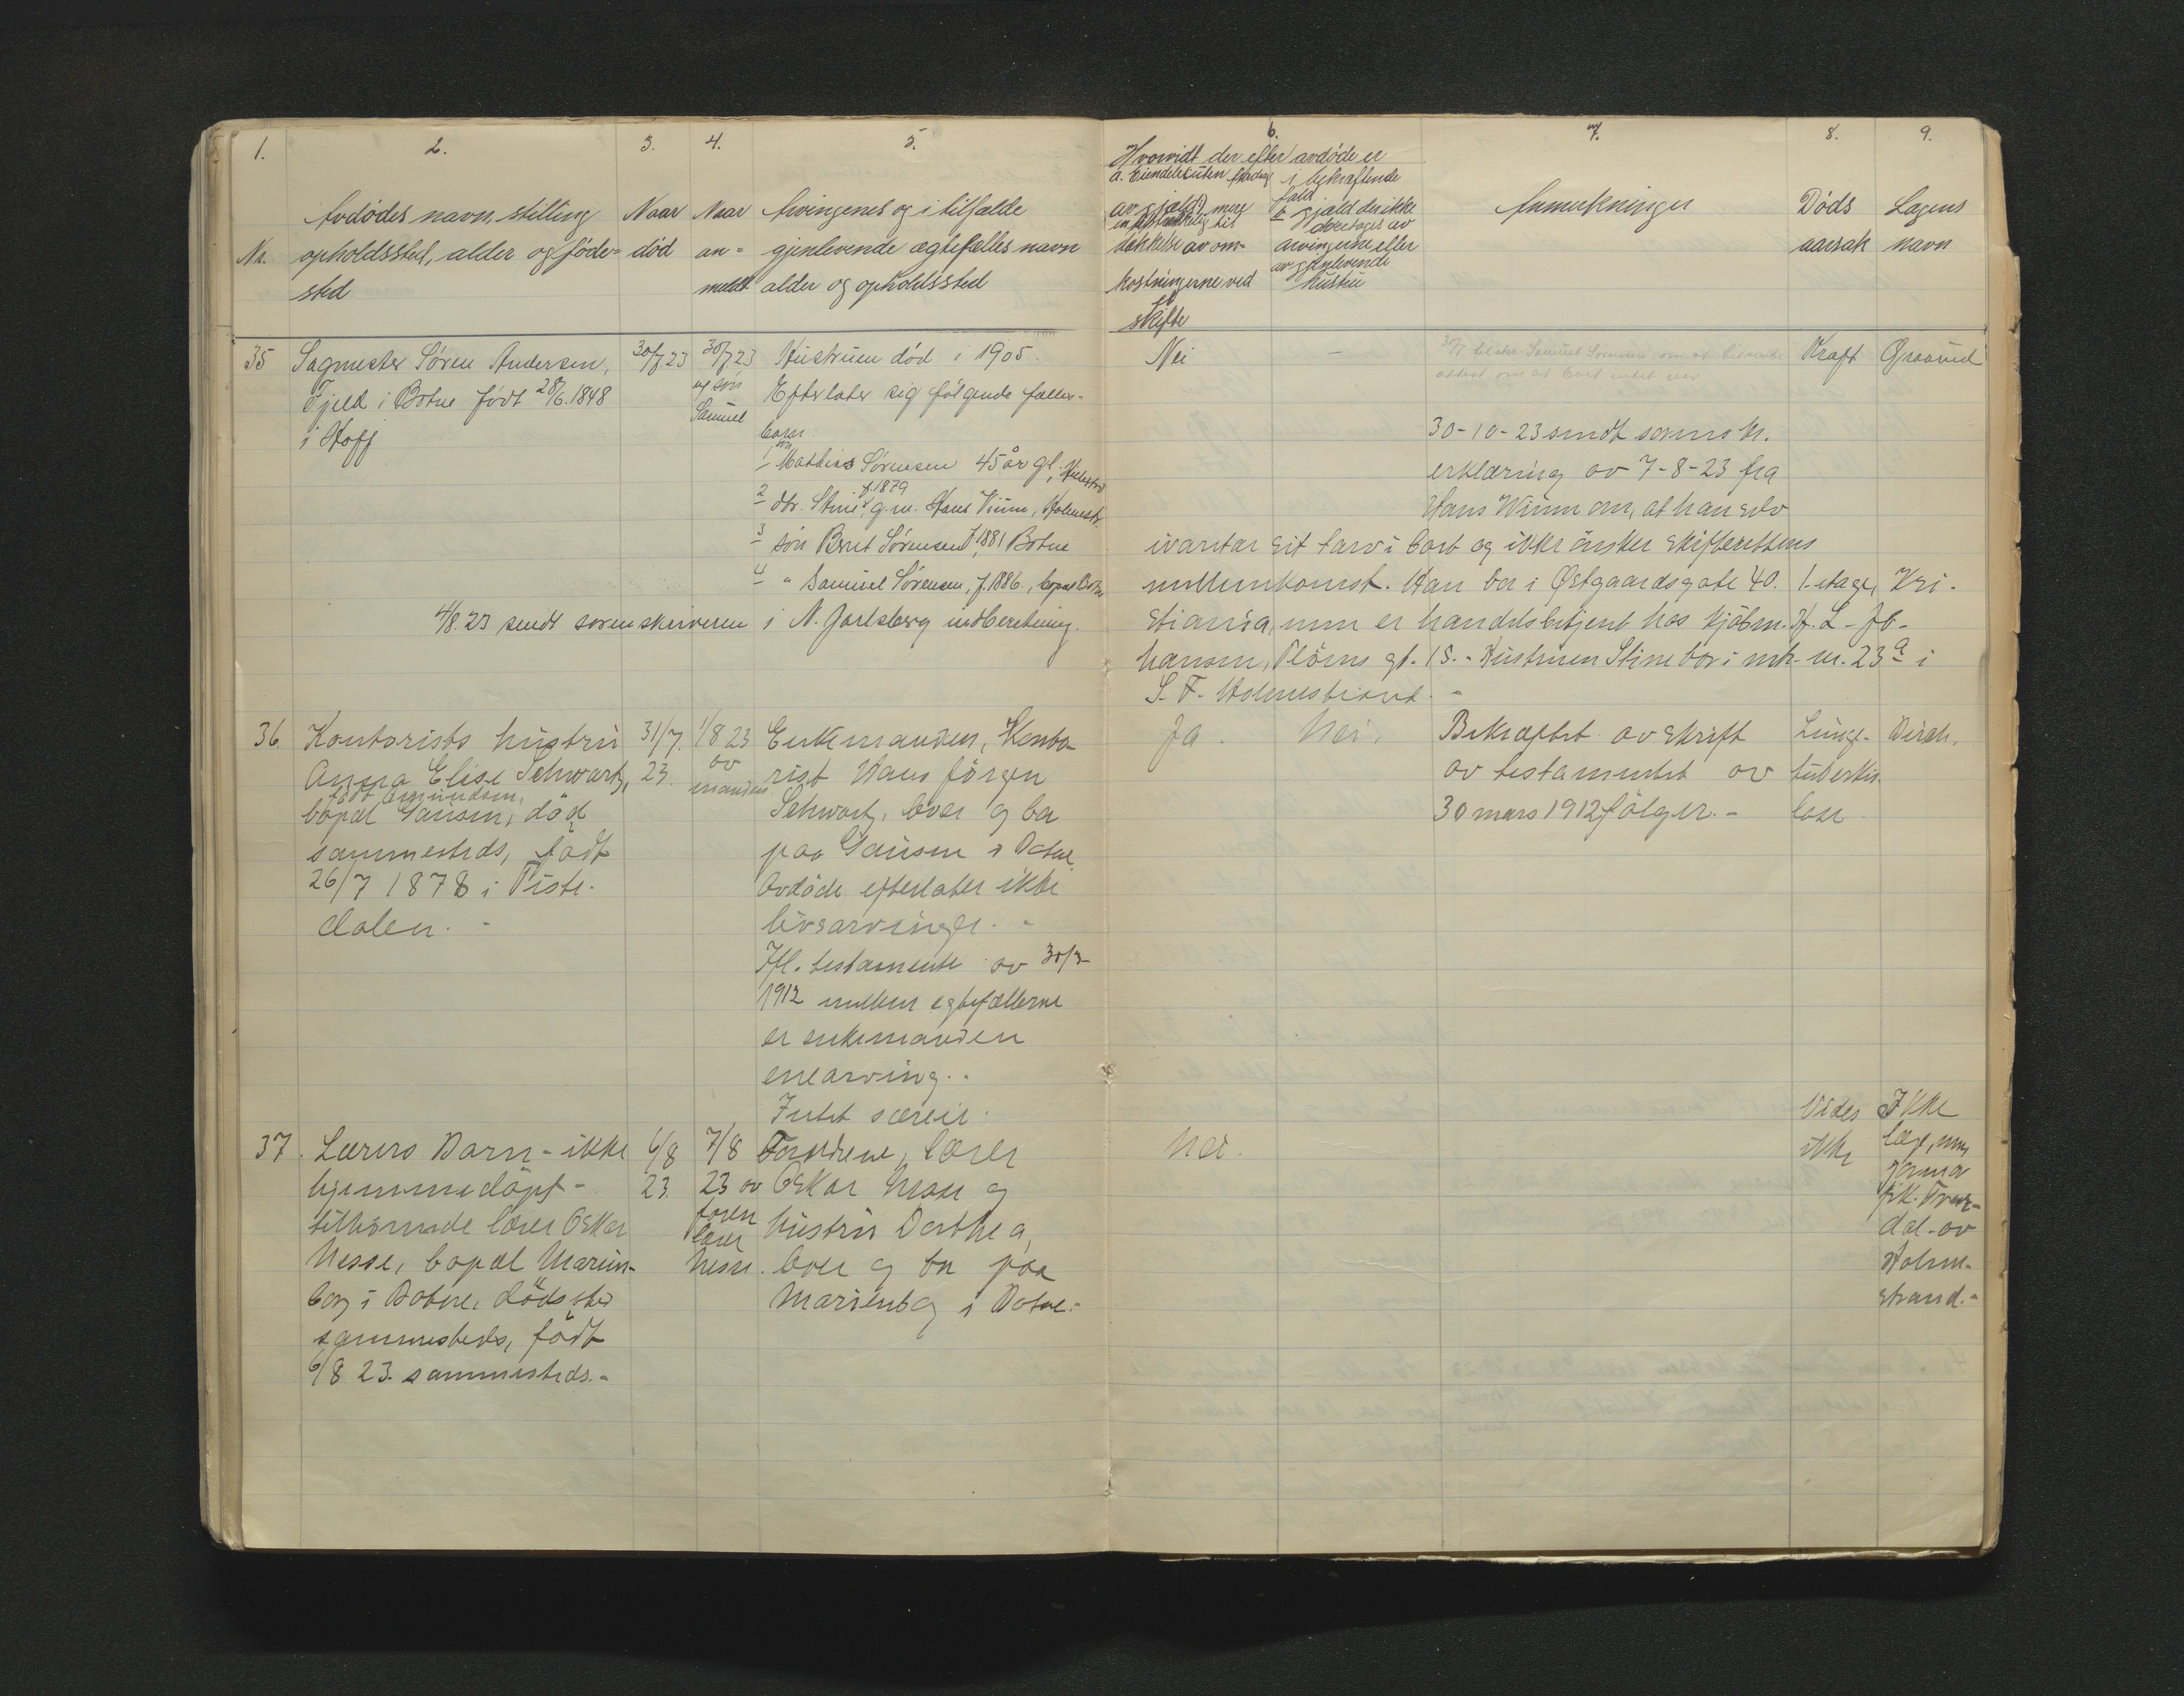 1. 2. 3. 4. 5. 6. 7. 8. 9.
Nr.
Avdødes navn, stilling
opholdssted, alder og føde-
sted
Naar
død
Naar
an-
meldt
Arvingenes og i tilfælde
gjenlevende ægtefælles navn
alder og opholdssted
Hvorvidt der efter avdøde er
a. Eiendeler uten fradrag
av gjæld) mere
en tilstrækkelig til
dækkelse av om-
kostningerne ved
skifte
i bekræftende
fald
b gjæld der ikke
overtages av
arvingerne eller
av gjenlevende
hustru
Anmerkninger
Døds
aarsak
Lægens
navn
35
Sagmester Søren Andersen,
Fjeld i Botne født 28/6.1848
i Hoff
30/7.23
30/7 23
av søn
Samuel
Hustruen død i 1905.
Efterlater sig følgende fælles-
barn:
1 søn Mathias Sørensen 45 år gl.
2 dtr. Stine f. 1879 g.m. Hans Vinm, Holmestr.
3 søn Bernt Sørensen f 1881 Botne
4 " Samuel Sørensen, f. 1886, bopæl Botne
4/8.23 sendt sorenskriveren i N. Jarlsberg indberetning.
Nei
-
Kraft
Graarud
30-10-23 sendt sorenskr.
erklæring av 7-8-23 fra
Hans Winm om, at han selv
ivaretar sit tarv i boet og ikke ønsker skifterettens
mellemkomst. Han bor i Østgaardsgate 40. 1. etage, Kri-
stiania, men er handelsbetjent hos kjøbm. H. L. Jo-
hansen, Pløens gt. 15. - Hustruen Stine bor i mtr. nr. 23 a i
S. F. Holmestrand. -
36.
Kontorists hustru
Anna Elise Schwartz,
født Amundsen,
bopæl Gausen, død
sammesteds, født
26/7 1878 i Tiste-
dalen. -
31/7.
23.
1/8 23
av
manden
Enkemanden, Konto-
rist Hans Jörgen
Schwartz, lever og bor
paa Gausen i Botne.
Avdöde efterlater ikke
livsarvinger. -
Ifl. testamente av 30/3-
1912 mellem egtefællerne
er enkemanden
enearving. -
Intet særeie.
Ja.
Nei.
Bekræftet avskrift
av testamentet av
30 mars 1912 følger. -
Lunge-
tuberku-
lose
Birch.
37.
Lærers Barn - ikke
hjemmedöpt -
tilhörende lærer Oskar
Nesse, bopæl Marien-
borg i Botne, dödssted
sammesteds, födt
6/8 23. sammesteds. -
6/8
23.
7/8
23 av
faren
lærer
Nesse.
Forældrene, lærer
Oskar Nesse og
hustru Dorthea,
lever og bor paa
Marienborg i Botne. -
Nei.
Vides
ikke
Ikke
læge, men
jormor
frk.
dal - av
Holme-
strand. -